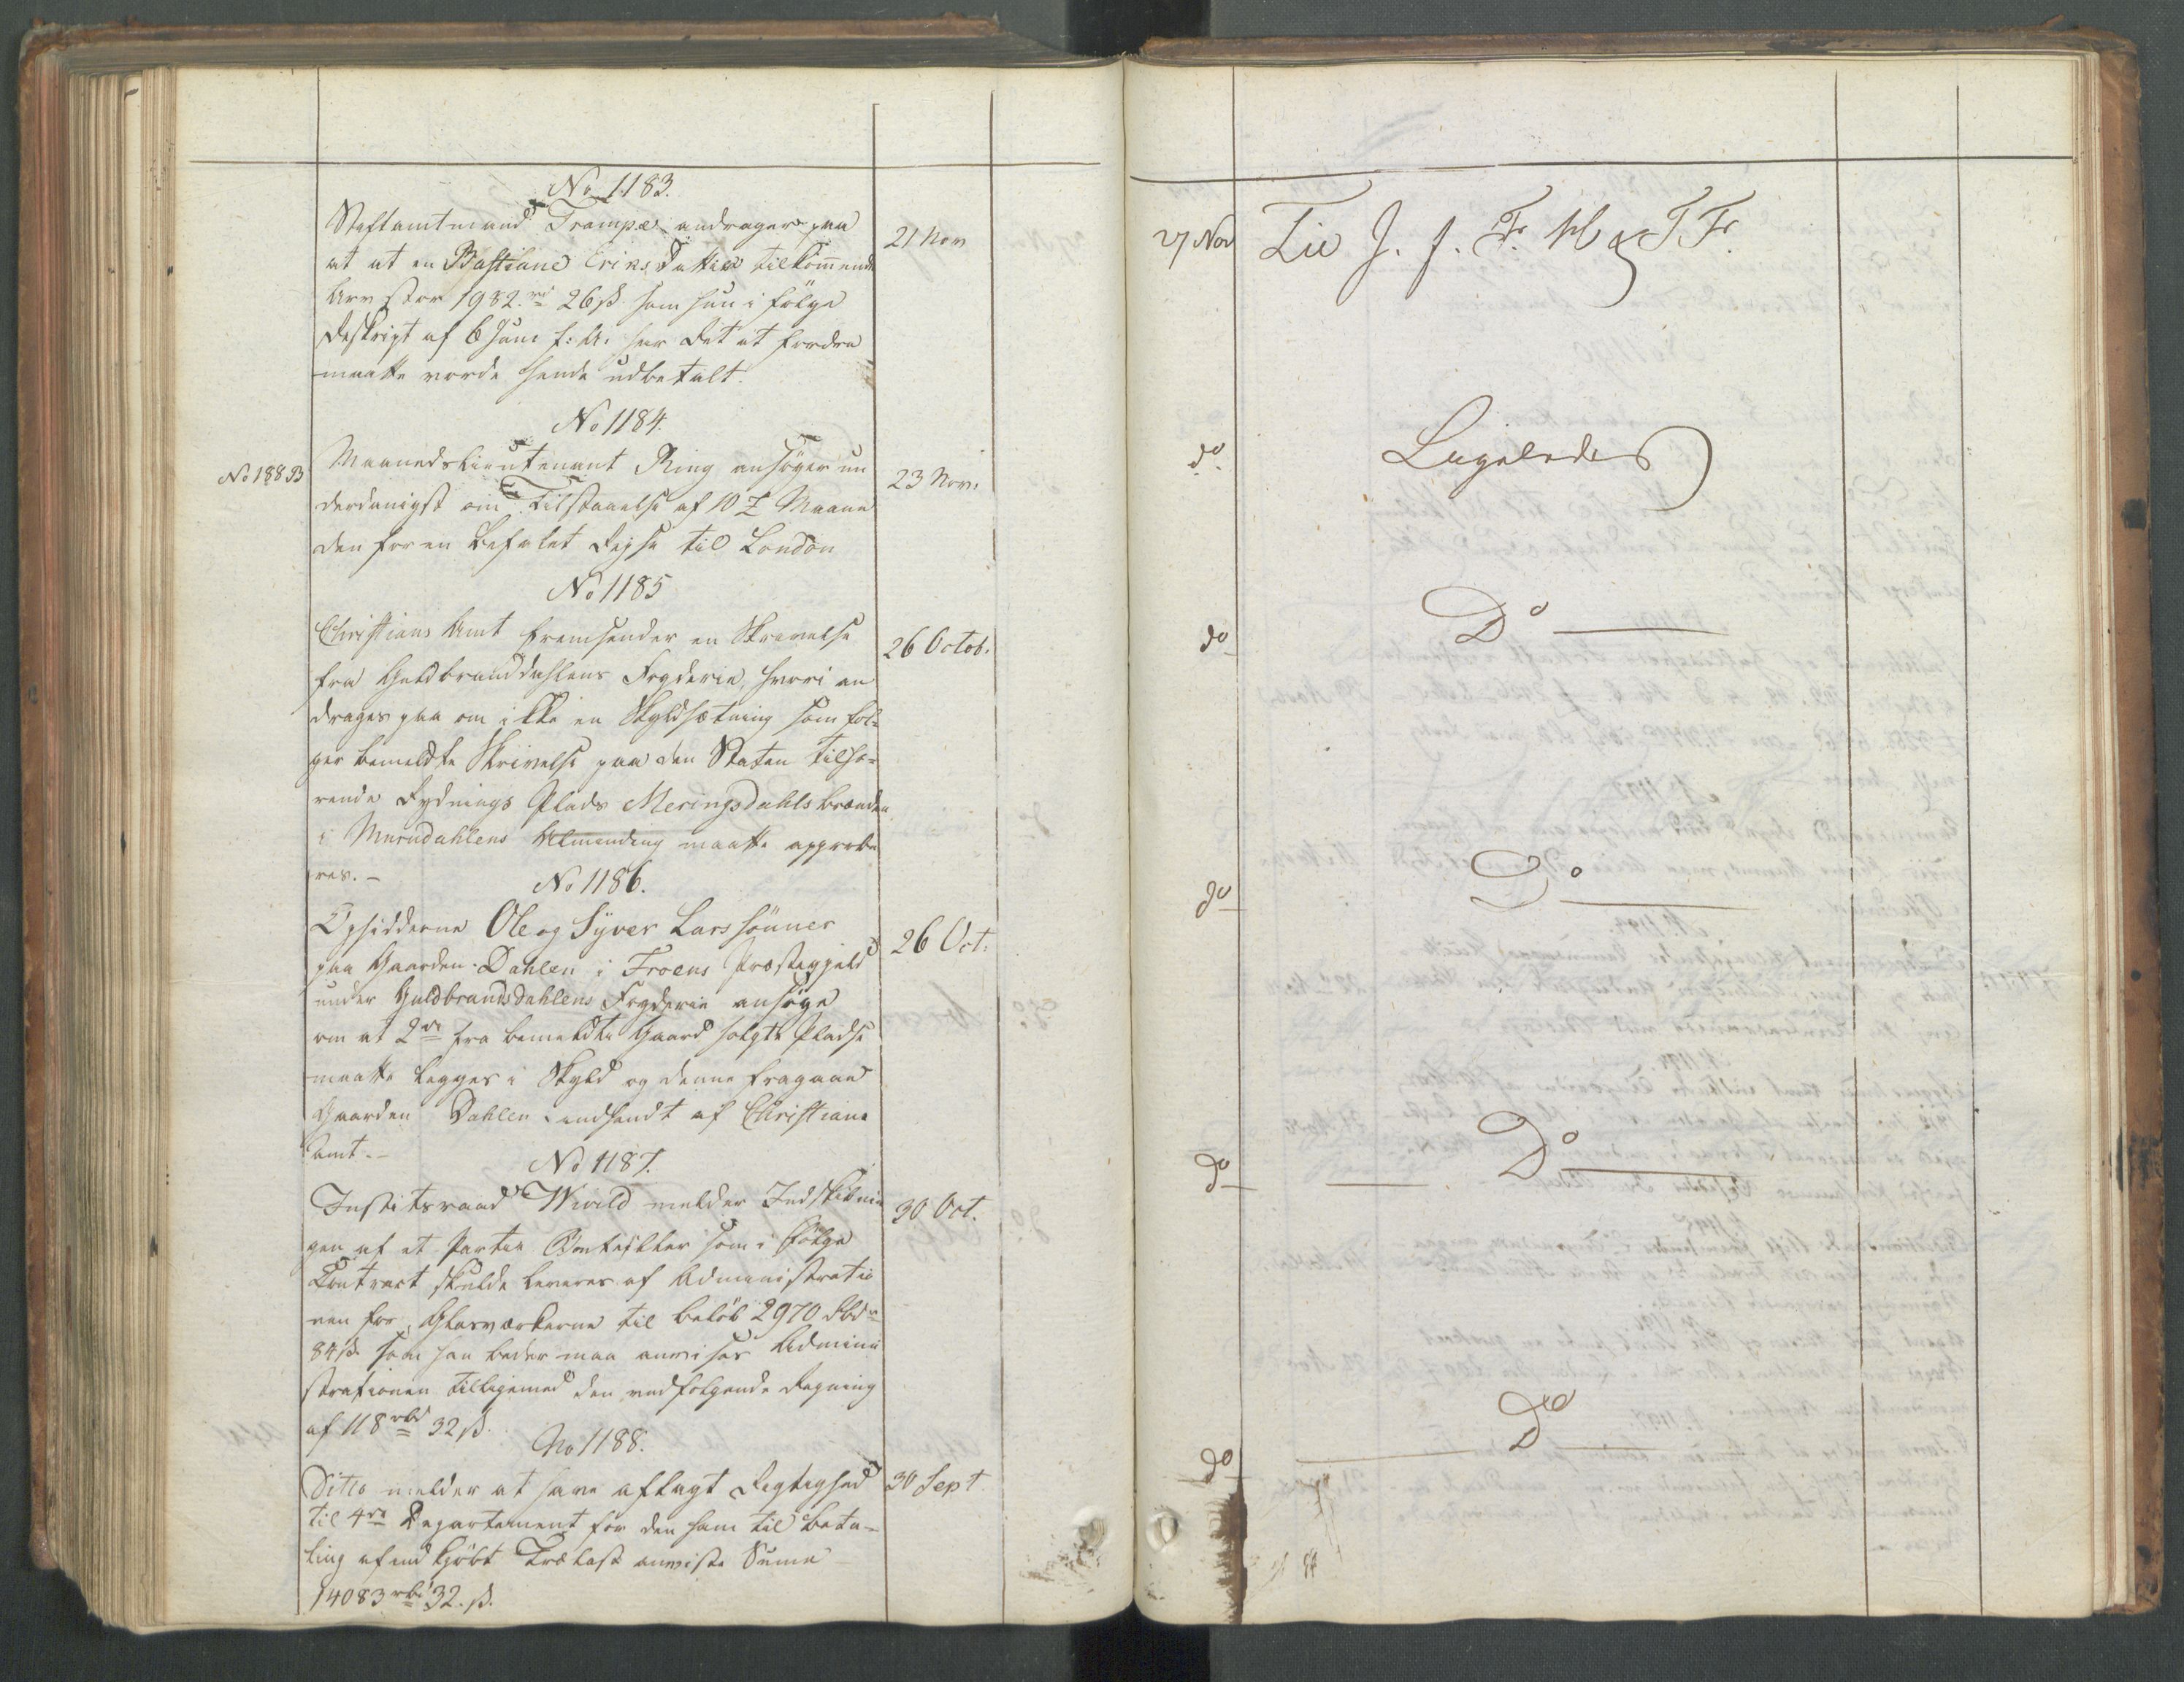 No 1183.
Stiftamtmand Trampe andrager paa
at at en Bastiane Eriks Datter tilkommende
Arv stor 1982 rd 26 s som hun i følge
Reskript af 6 Juni f: A: har Ret at fordre
maatte vorde hende udbetalt.
21 Nov
No 1184.
No 188 B
Maanedslieutenant Ring ansøger un
derdanigst om Tilstaaelse af 10 £ Maane
den for en befalet Rejse til London
23 Nov.
No 1185
Christians Amt fremsender en Skrivelse
fra Guldbranddahlens Fogderie, hvori an
drages paa om ikke en Skyldsætning som føl-
ger bemeldte Skrivelse paa den Staten tilhø-
rende Rydnings Plads Meringsdahls brænden
i Murudahlens Almending maatte approbe
res. -
26 Octob.
No 1186.
Opsidderne Ole og Syver Larssönner
paa Gaarden Dahlen i Froens Præstegjeld
under Guldbrandsdahlens Fogderie ansøge
om at 2de fra bemeldte Gaard solgte Pladse
maatte legges i Skyld og denne fragaae
Gaarden Dahlen indsendt af Christians
Amt. -
26 Oct.
No 1187.
Justitsraad Wivild melder Indskibnin
gen af et Partie Bouteiller som i følge
Contract skulde leveres af Administratio
nen for Glasværkerne til beløb 2970 Rbd
84 s som han beder maa anvises Admini
strationen tilligemed den vedfølgende Regning
af 118 rbd 32 s.
30 Oct.
No 1188.
Ditto melder at have aflagt Rigtighed
til 4de Departement for den ham til beta-
ling af indkjöbt Trælast anviste Suma
14083 rbd 32. s.
30 Sept.
27 Nov
Lie J. f. Fr. H og T Fr.
do
Ligeledes
do
Do
do
Do
do
Do
do
Do